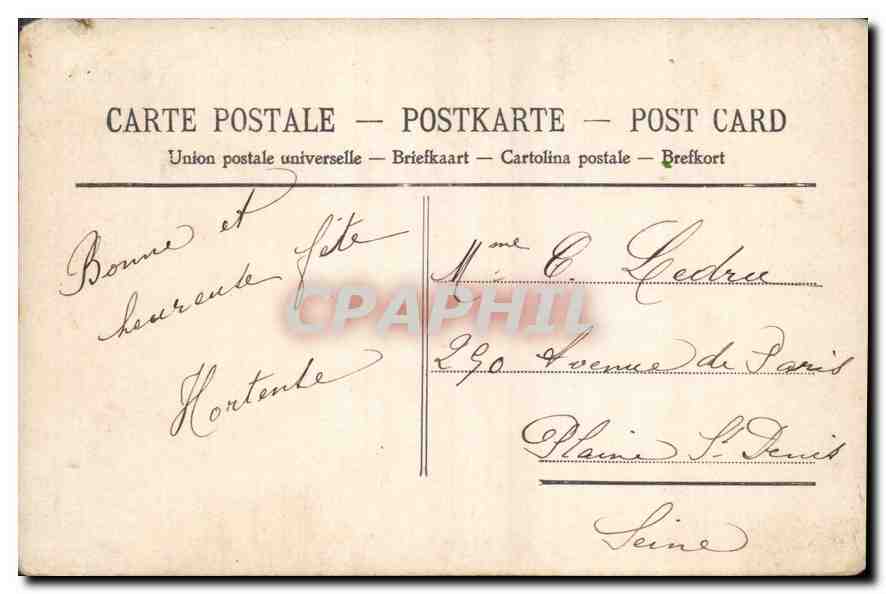 CARTE POSTALE — POSTKARTE — POST CARD
Union postale universelle — Briefkaart — Cartolina postale — Brefkort
Bonne et
heureuse fête
Hortense
Mme C. Ledru
290 Avenue de Paris
Plaine St Denis
Seine
CPAPHIL